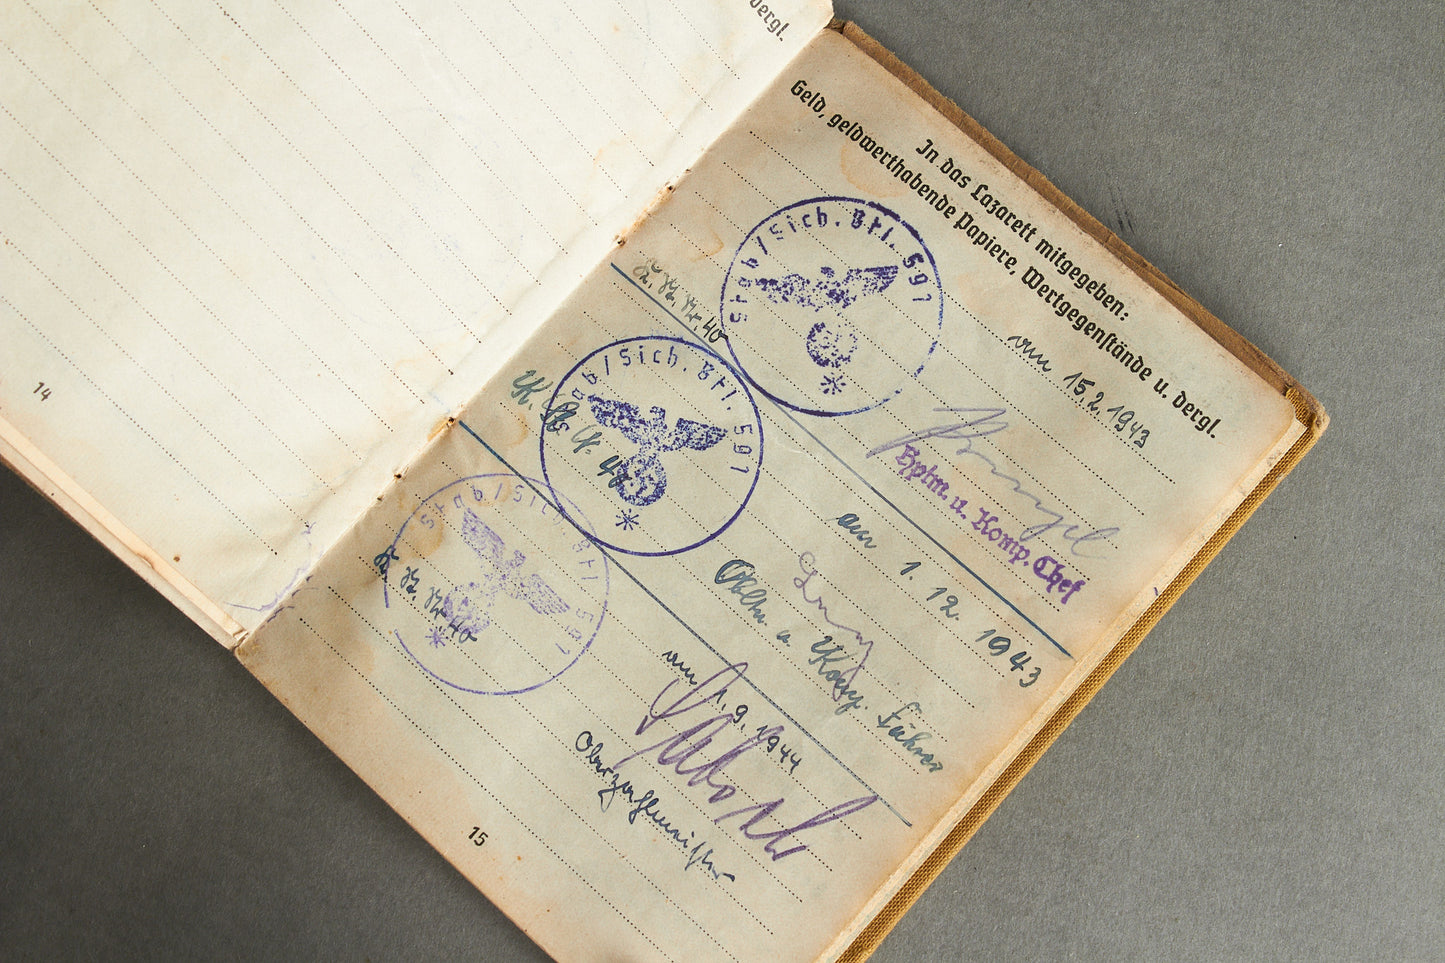 dergl.
14
In das Lazarett mitgegeben:
Geld, geldwerthabende Papiere, Wertgegenstände u. dergl.
Stab/Sich. Btl. 591
am 15.2.1943
Hptm. u. Komp. Chef
Stab/Sich. Btl. 591
am 1. 12. 1943
Obltn. u. Komp. Führer
Stab/Sich. Btl. 591
am 1.9.1944
Oberzahlmeister
15